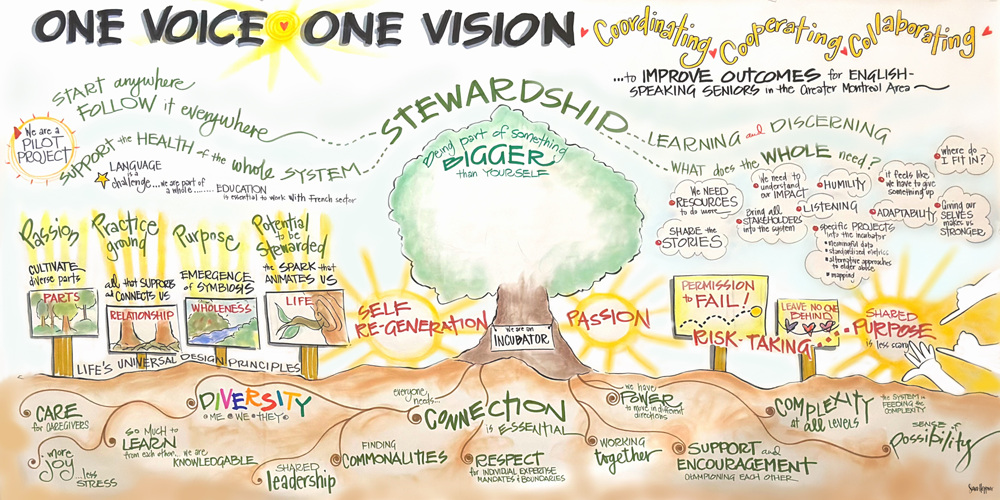 ONE VOICE ONE VISION
Coordinating, Cooperating, Collaborating
...to IMPROVE OUTCOMES for ENGLISH-
SPEAKING SENIORS in the Greater Montreal Area
START anywhere
FOLLOW it everywhere
We are a
PILOT
PROJECT
SUPPORT the HEALTH of the whole SYSTEM
LANGUAGE
is a
challenge... we are part of
a whole........ EDUCATION
is essential to work with French sector
STEWARDSHIP
being part of something
BIGGER
than YOURSELF
LEARNING and DISCERNING
WHAT does the WHOLE need?
where do
I FIT IN?
We NEED
RESOURCES
to do more
We need to
understand
our IMPACT
HUMILITY
it feels like
we have to give
something up
LISTENING
Bring all
STAKEHOLDERS
into the system
ADAPTABILITY
Giving our
SELVES
makes us
STRONGER
SHARE the
STORIES
specific PROJECTS
into the incubator
meaningful data
standardized metrics
alternative approaches
to elder abuse
mapping
Passion
CULTIVATE
diverse parts
PARTS
Practice
ground
all that SUPPORTS
and CONNECTS US
RELATIONSHIP
Purpose
EMERGENCE
of SYMBIOSIS
WHOLENESS
Potential
to be
Stewarded
the SPARK that
ANIMATES US
LIFE
LIFE'S UNIVERSAL DESIGN PRINCIPLES
SELF
RE-GENERATION
We are an
INCUBATOR
PASSION
PERMISSION
to FAIL!
RISK-TAKING
LEAVE NO ONE
BEHIND
SHARED
PURPOSE
is less scary
CARE
for CAREGIVERS
more
joy...less
STRESS
SO MUCH to
LEARN
from each other... we are
KNOWLEDGABLE
DIVERSITY
ME WE THEY
SHARED
leadership
FINDING
COMMONALITIES
everyone
needs...
CONNECTION
is ESSENTIAL
RESPECT
for INDIVIDUAL EXPERTISE
MANDATES & BOUNDARIES
we have
POWER
to move in different
directions
WORKING
together
SUPPORT and
ENCOURAGEMENT
CHAMPIONING EACH OTHER
COMPLEXITY
at all levels!
the SYSTEM is
FEEDING the
COMPLEXITY
SENSE of
possibility